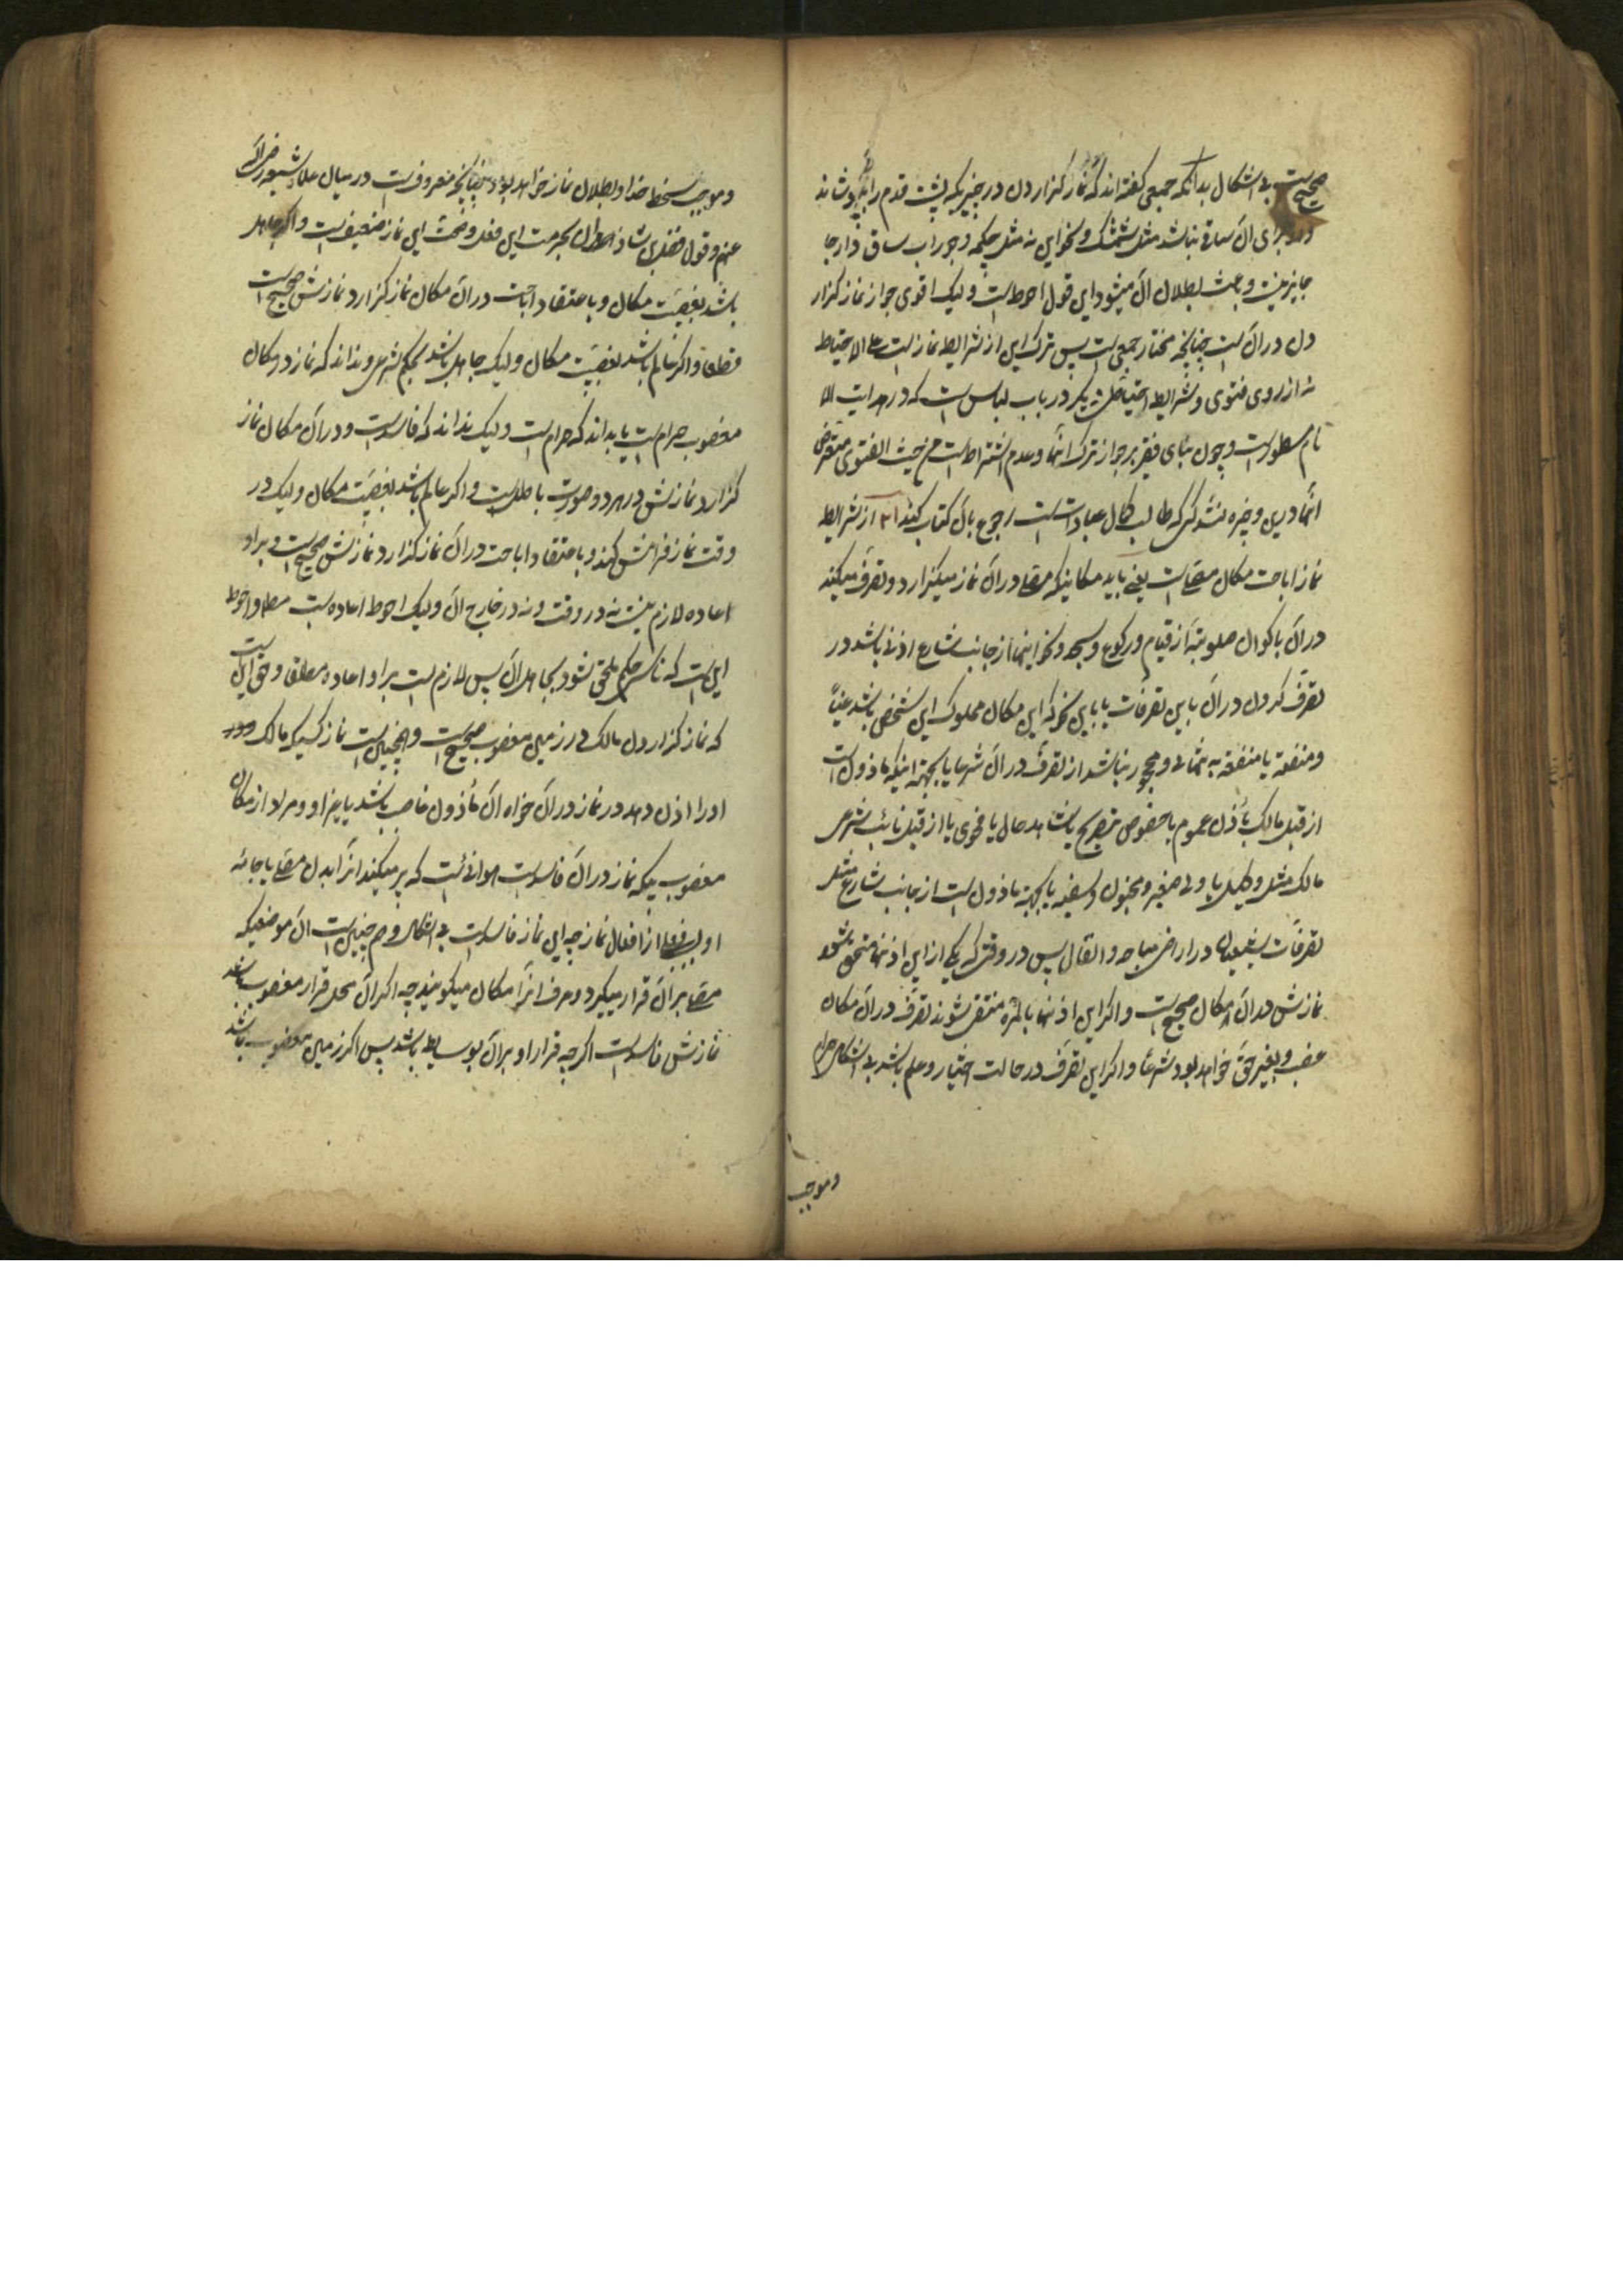 صحیح است بی اشکال بدانکه جمعی گفته اند که نماز گزاردن در چیزیکه پشت قدم را بپوشاند
و برای آن ساق نباشد مثل شمشک و نحو این نه مثل چکمه و جوراب ساق دار جا
جایز نیست و باعث بطلان آن میشود این قول احوط است ولیک اقوی جواز نماز گزار
دن در آن است چنانچه مختار جمعی است پس ترک این از شرایط نماز است علی الاحتیاط
نه از روی فتوی و شرایط احتیاطی دیگر در باب لباس هست که در هدایت الا
نام مسطور است و چون بنای فقیر بر جواز ترک آنها و عدم اشتراط است من حیث الفتوی متعرض
آنها در این وجیزه نشد کسی که طالب کمال عبادت است رجوع بآن کتاب کند ۳ از شرایط
نماز اباحت مکان مصلی است یعنی باید مکانیکه مصلی در آن نماز میگزارد و تصرف میکند
در آن باکوان صلوتیه از قیام و رکوع و سجود و نحو اینها از جانب شارع اذنی باشد در
تصرف کردن در آن باین تصرفات یا باین نحو که این مکان مملوک این شخص باشد عیناً
و منفعة یا منفعة به تنهائی و محجور نباشد از تصرف در آن شرعا یا بجهة اینکه ماذون است
از قبل مالک باذن عموم یا خصوص بتصریح یا شاهد حال یا فحوی یا از قبل نائب شرعی
مالک مثل وکیل یا ولی صغیر و مجنون و سفیه یا بجهة ماذون است از جانب شارع مثل
تصرفات شیعیان در اراضی مباحه و انفال پس در وقتی که یکی از این اذنها متحقق شود
نمازش در آن مکان صحیح است و اگر این اذنها بالمره منتفی شوند تصرف در آن مکان
غصب و بغیر حق خواهد بود شرعاً و اگر این تصرف در حالت اختیار و علم باشد بی اشکال حرام
وموجب
وموجب سخط خدا و بطلان نماز خواهد بود چنانچه معروف است در میان علماء شیعه رضی الله
عنهم و قول فضل بن شاذان بحرمت این فعل و صحت این نماز ضعیف است و اگر جاهل
باشد بغصبیت مکان و باعتقاد اباحت در آن مکان نماز گزارد نمازش صحیح است
قطعا و اگر عالم باشد بغصبیت مکان ولیک جاهل باشد بحکم شرعی و نداند که نماز در مکان
مغصوب حرام است یا بداند که حرام است ولیک نداند که فاسد است و در آن مکان نماز
گزارد نمازش در هر دو صورت باطل است و اگر عالم باشد بغصبیت مکان ولیک در
وقت نماز فراموش کند و باعتقاد اباحت در آن نماز گزارد نمازش صحیح است و بر او
اعاده لازم نیست نه در وقت و نه در خارج آن ولیک احوط اعاده است مطلقا و احوط
این است که ناسی حکم ملحق شود بجاهل آن پس لازم است بر او اعاده مطلقا و حق این است
که نماز گزاردن مالک در زمین مغصوب صحیح است و همچنین است نماز کسیکه مالک
او را اذن دهد در نماز در آن خواه آن مأذون غاصب باشد یا غیر او و مراد از مکان
مغصوب یکه نماز در آن فاسد است هوائیست که پر میکند آنرا بدن مصلی یا جامه
او در فعلی از افعال نماز چه این نماز فاسد است بی اشکال و هم چنین است آن موضعیکه
مصلی بر آن قرار میگیرد و عرف آنرا مکان میگویند چه اگر آن محل قرار مغصوب باشد
نمازش فاسد است اگر چه قرار او بر آن بوسایط باشد پس اگر زمین مغصوب باشد